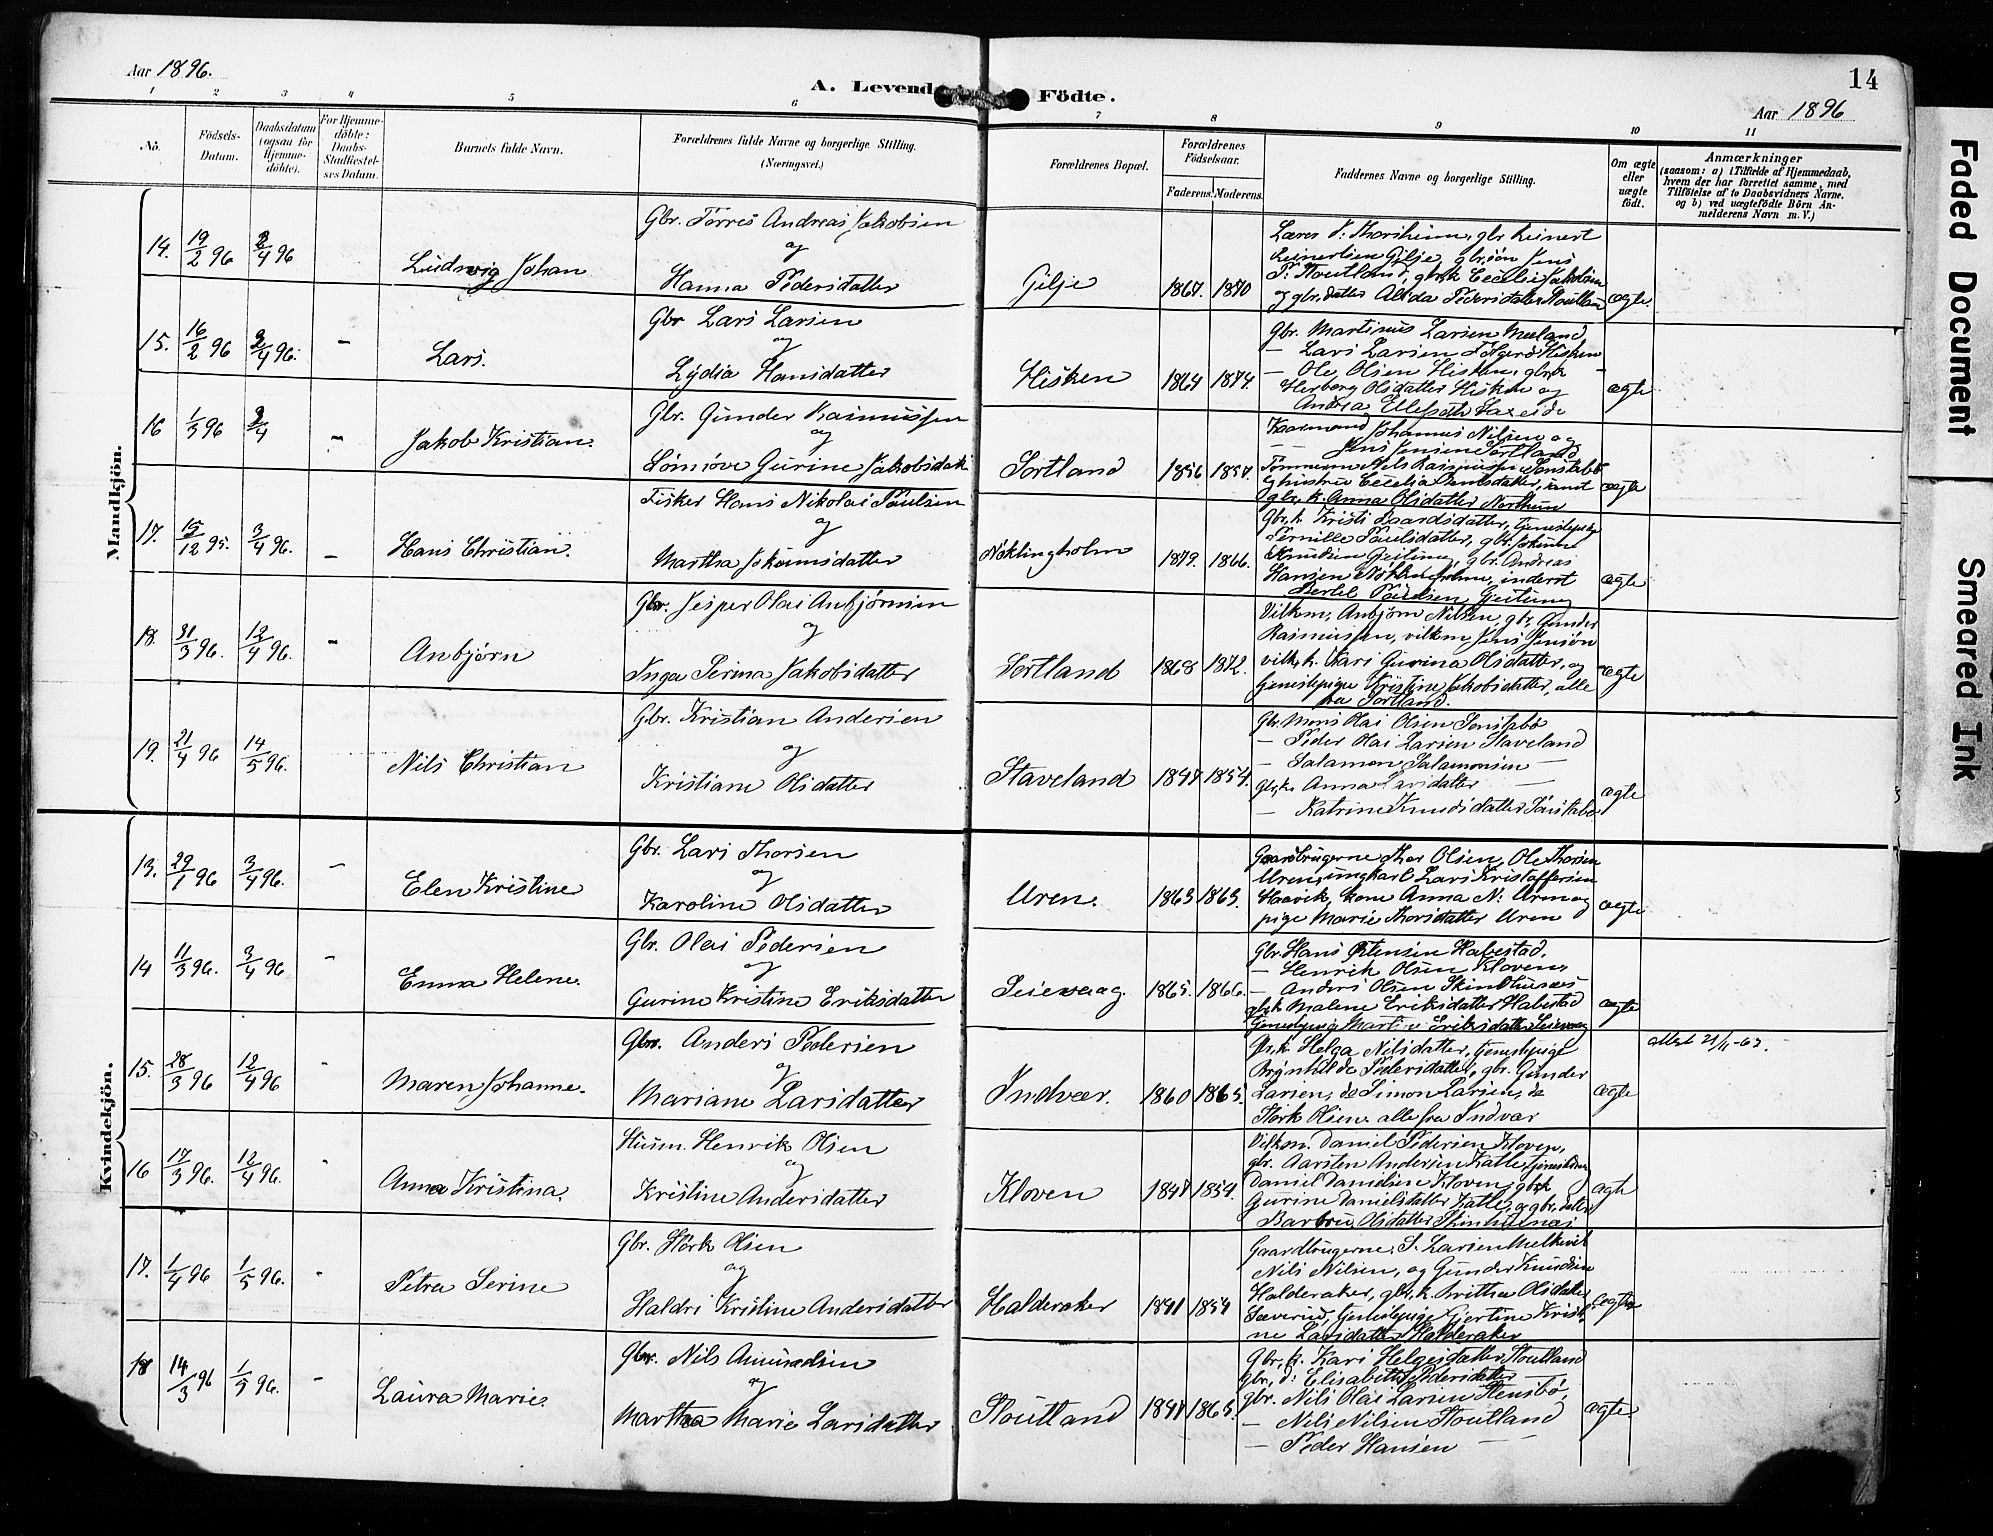 Aar 1896.
A. Levende Födte.
14
Aar 1896
1 2 3 4 5 6 7 8 9 10 11
No.
Födsels-
Datum.
Daabsdatum
(ogsaa for
Hjemme-
döbte).
For Hjemme-
döbte:
Daabs-
Stadfæstel-
ses Datum.
Barnets fulde Navn.
Forældrenes fulde Navne og borgerlige Stilling.
(Næringsvei.)
Forældrenes Bopæl.
Forældrenes
Födselsaar.
Faderens. Moderens.
Faddernes Navne og borgerlige Stilling.
Om ægte
eller
uægte
födt.
Anmærkninger
(saasom: a) i Tilfælde af Hjemmedaab,
hvem der har forrettet samme, med
Tilföielse af to Daabsvidners Navne,
og b) ved uægtefödte Börn An-
melderens Navn m. V.)
Mandkjön.
14. 19/2 96 3/4 96
Ludvig Johan
Gbr. Torres Andreas Jakobsen
og
Hanna Pedersdatter
Gilje 1867. 1870
Lærer P. Thorsheim, gbr Reinert
Reinertsen Gilje, gbr.sön Jens
P. Stoutland, gbrk Cecilie Jakobsen
og gbr.datter Alida Pedersdatter Stoutland
ægte.
15. 16/2 96 3/4 96. -
Lars.
Gbr Lars Larsen
og
Lydia Hansdatter
Hisken 1864 1874.
Gbr. Martinus Larsen Meeland
— Lars Larsen Hisken
— Ole Olsen Hisken, gbrk
Herborg Olsdatter Hisken og
Andrea
ægte
16 1/3 96 3/4 -
Jakob Kristian.
Gbr. Gunder Rasmussen
og
Sörnöve Gurine Jakobsdatt
Sortland 1856 1857.
Johannes Nilsen og
— Jens Jensen Sortland
Tömmerm Nils Rasmussen Sönstabö
og hustru Cecelia samt
gbr. k. Anna Olsdatter Northun
ægte
17. 15/12 95. 3/4 96. -
Hans Christian.
Fisker Hans Nikolai Paulsen
og
Martha Jokumsdatter
Nöklingholm 1879. 1866.
Gbr.k. Kristi Baardsdatter, tjenestepige
Pernille Paulsdatter, gbr. Jokum
Knudsen Geitung, gbr. Andreas
Hansen Nöklingholm, inderst
Bertel Paulsen, Geitung
ægte
18. 31/3 96. 12/4 96. -
Anbjörn
Gbr. Jesper Olai Anbjörnsen
og
Inga Serina Jakobsdatter
Sortland 1868 1872.
Vilkm, Anbjörn Nilsen, gbr, Gunder
Rasmussen, vilkm Jens Jensön
vilk, k. Kari Gurina Olsdatter, og
tjenestepige Kristine Jakobsdatter, alle
fra Sortland.
ægte
19. 21/4 96 14/5 96.
Nils Christian
Gbr. Kristian Andersen
og
Kristiane Olsdatter
Staveland 1847 1854.
Gbr. Mons Olai Olsen Sönstabö
— Peder Olai Larsen Staveland
— Salamon Salamonsen —
Gbr,k. Anna Larsdatter —
— Katrine Knudsdatter Sönstabö
ægte
Kvindekjön.
13. 29/1 96 3/4 96. -
Elen Kristine
Gbr. Lars Thorsen
og
Karoline Olsdatter
Uren. 1863 1863.
Gaardbrugerne Thor Olsen, Ole Thorsen
Uren, ungkarl Lars Kristoffersen
Haavik, kone Anna N. Uren og
pige Marie Thorsdatter Uren
ægte
14 11/3 96. 3/4 96 -
Emma Helene.
Gbr. Olai Pedersen
og
Gurine Kristine Eriksdatter
Seievaag. 1865. 1866.
Gbr. Hans Östensen Habestad,
— Henrik Olsen Kloven,
— Anders Olsen Skinthusnes
gbrk Malene Eriksdatter Habestad
Tjenestepige Eriksdatter Seievaag
ægte
15. 28/3 96 12/4 96
Maren Johanne.
Gbr. Anders Pedersen
og
Mariane Larsdatter
Indvær. 1860 1865.
Gbr,k. Helga Nilsdatter, tjenestepige
Brynhilde Pedersdatter, gbr. Gunder
Larsen, do Simon Larsen, do
Störk Olsen. alle fra Indvær
ægte
Attest 21/11-63.
16 17/3 96. 12/4 96.
Anna Kristina.
Husm. Henrik Olsen
og
Kristine Andersdatter
Kloven 1847 1854.
Vilkm. Daniel Pedersen Kloven,
gbr. Aarsten Andersen Katle, tjenestedreng
Daniel Danielsen Kloven, gbrk
Gurine Danielsdatter Katle, og gbr. datter
Barbru Olsdatter Skinthusnæs
ægte
17. 1/4 96 1/5 96. -
Petra Serine
Gbr. Störk Olsen
og
Haldri Kristine Andersdatter
Halderaker 1841 1854
Gaardbrugerne, S. Larsen Melkevik
Nils Nilsen, og Gunder Knudsen
Halderaker, gbr,k. Brittha Olsdatter
Sæverud, tjenestepige Gjertine Kristi-
ne Larsdatter Halderaker
ægte
18 14/3 96 1/5 96. -
Laura Marie.
Gbr. Nils Amundsen
og
Martha Marie Larsdatter
Stoutland 1847 1865.
Gbr,k. Kari Helgesdatter Stoutland
gbr, d: Elisabeth Pedersdatter —
gbr. Nils Olai Larsen Stensbö,
— Nils Nilsen Stoutland
— Peder Hansen —
ægte.
Faded Document
Smeared Ink